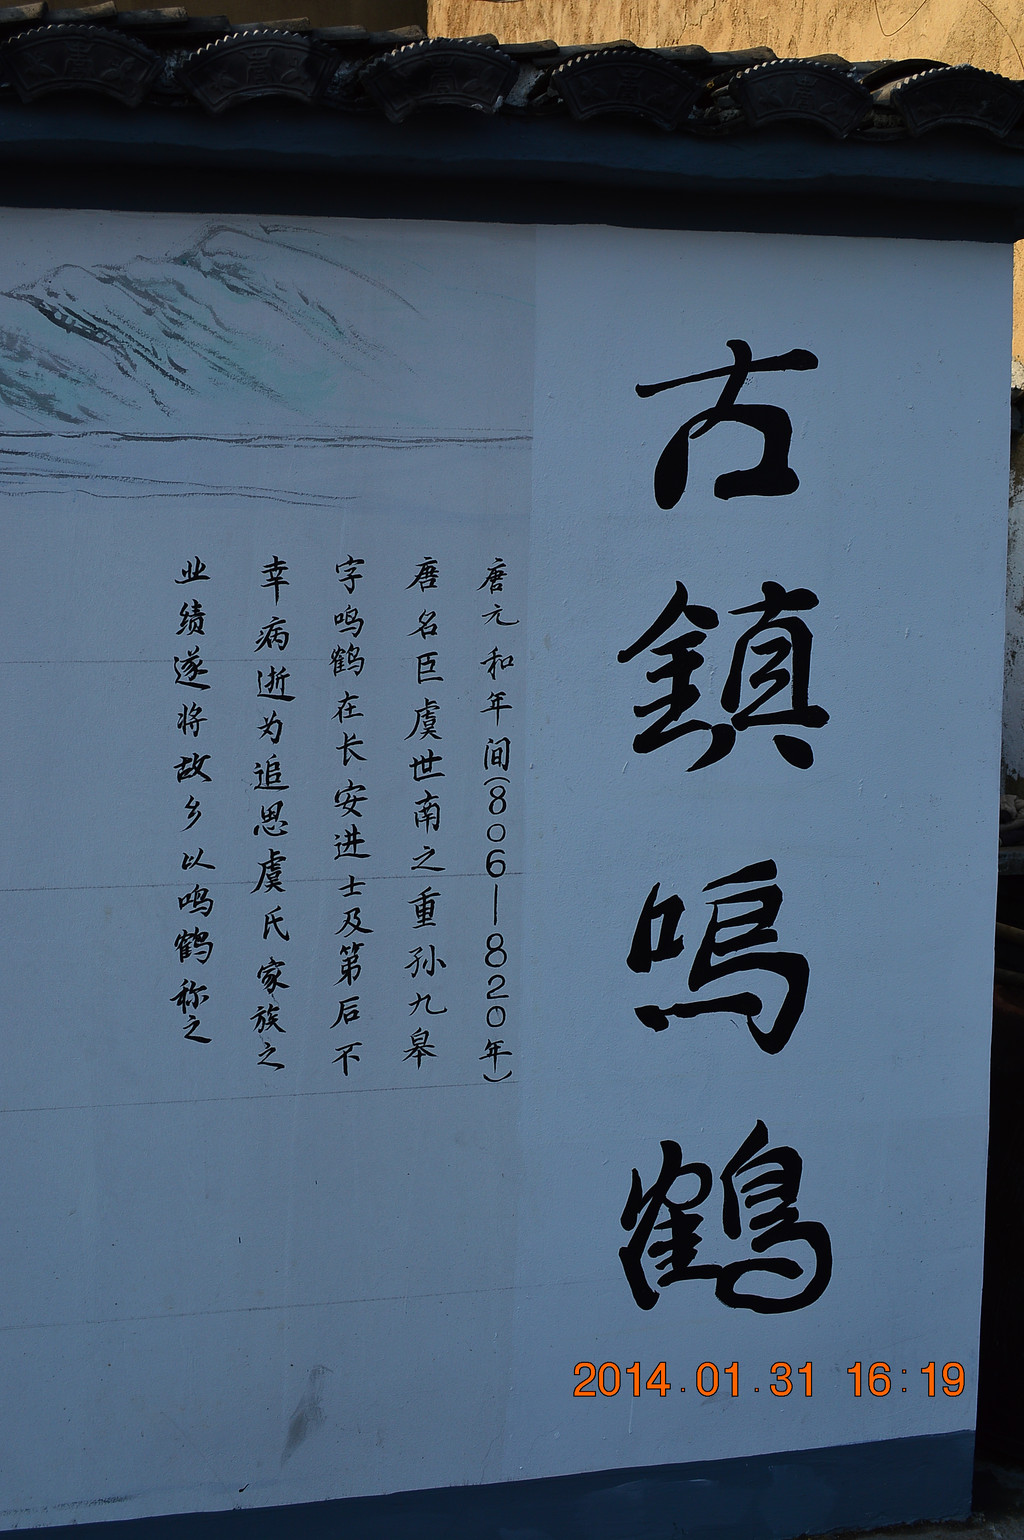 古鎮鳴鶴
唐元和年间(806—820年)
唐名臣虞世南之重孙九皋
字鸣鹤在长安进士及第后不
幸病逝为追思虞氏家族之
业绩遂将故乡以鸣鹤称之
2014.01.31 16:19